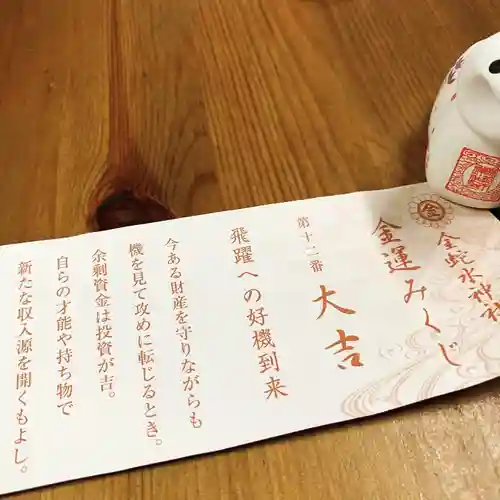 金蛇水神社
金運みくじ
第十二番
大吉
飛躍への好機到来
今ある財産を守りながらも
機を見て攻めに転じるとき。
余剰資金は投資が吉。
自らの才能や持ち物で
新たな収入源を開くもよし。